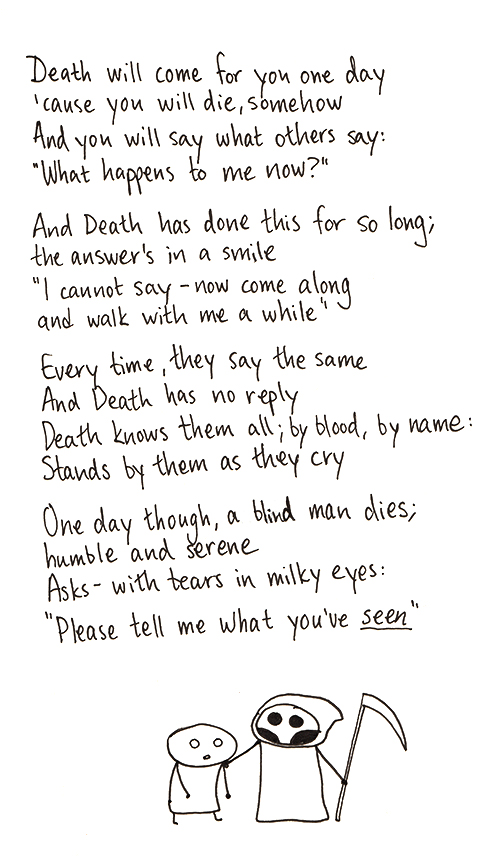 Death will come for you one day
'cause you will die, somehow
And you will say what others say:
"What happens to me now?"
And Death has done this for so long;
the answer's in a smile
"I cannot say - now come along
and walk with me a while"
Every time, they say the same
And Death has no reply
Death knows them all; by blood, by name:
Stands by them as they cry
One day though, a blind man dies;
humble and serene
Asks - with tears in milky eyes:
"Please tell me what you've seen"